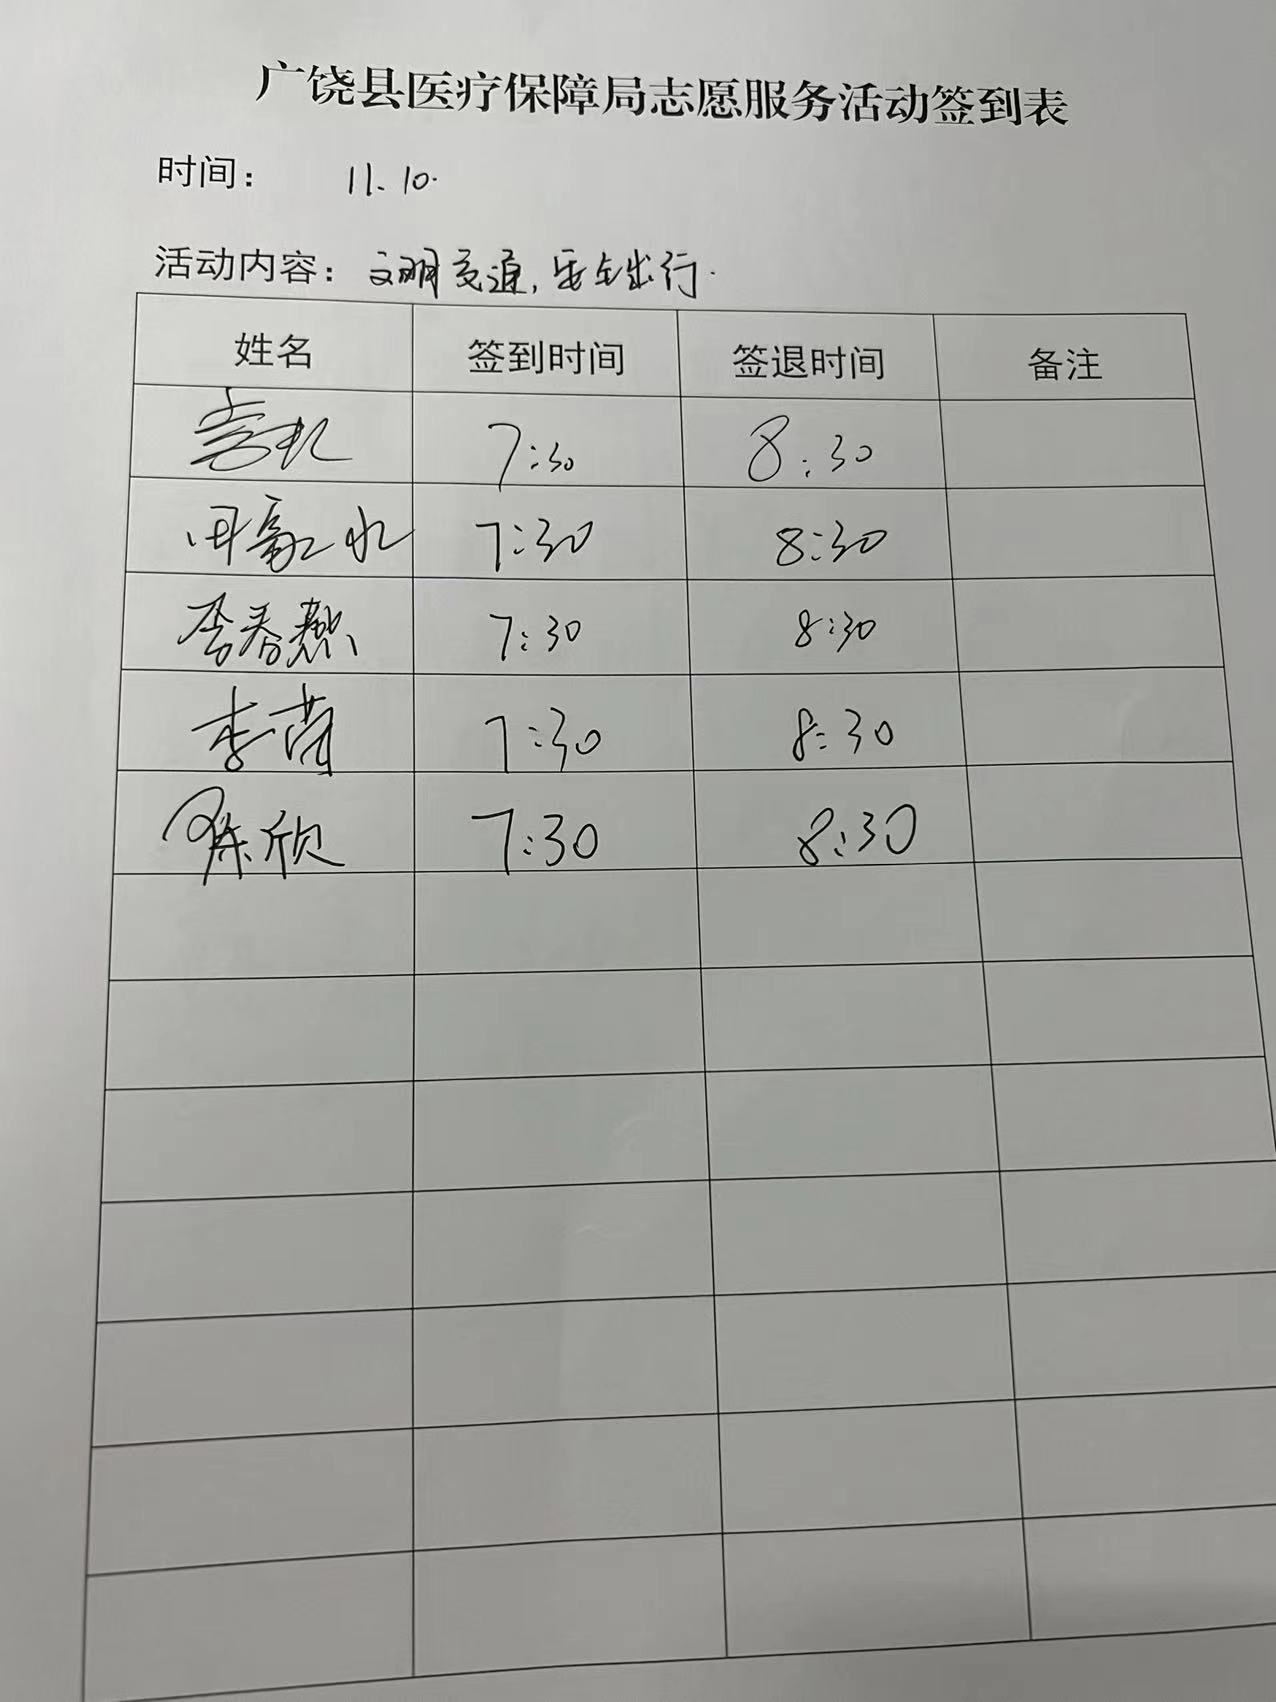 广饶县医疗保障局志愿服务活动签到表
时间： 11.10.
活动内容：文明交通，安全出行.
姓名 签到时间 签退时间 备注
7:30 8:30
7:30 8:30
李春燕 7:30 8:30
李菌 7:30 8:30
陈欣 7:30 8:30